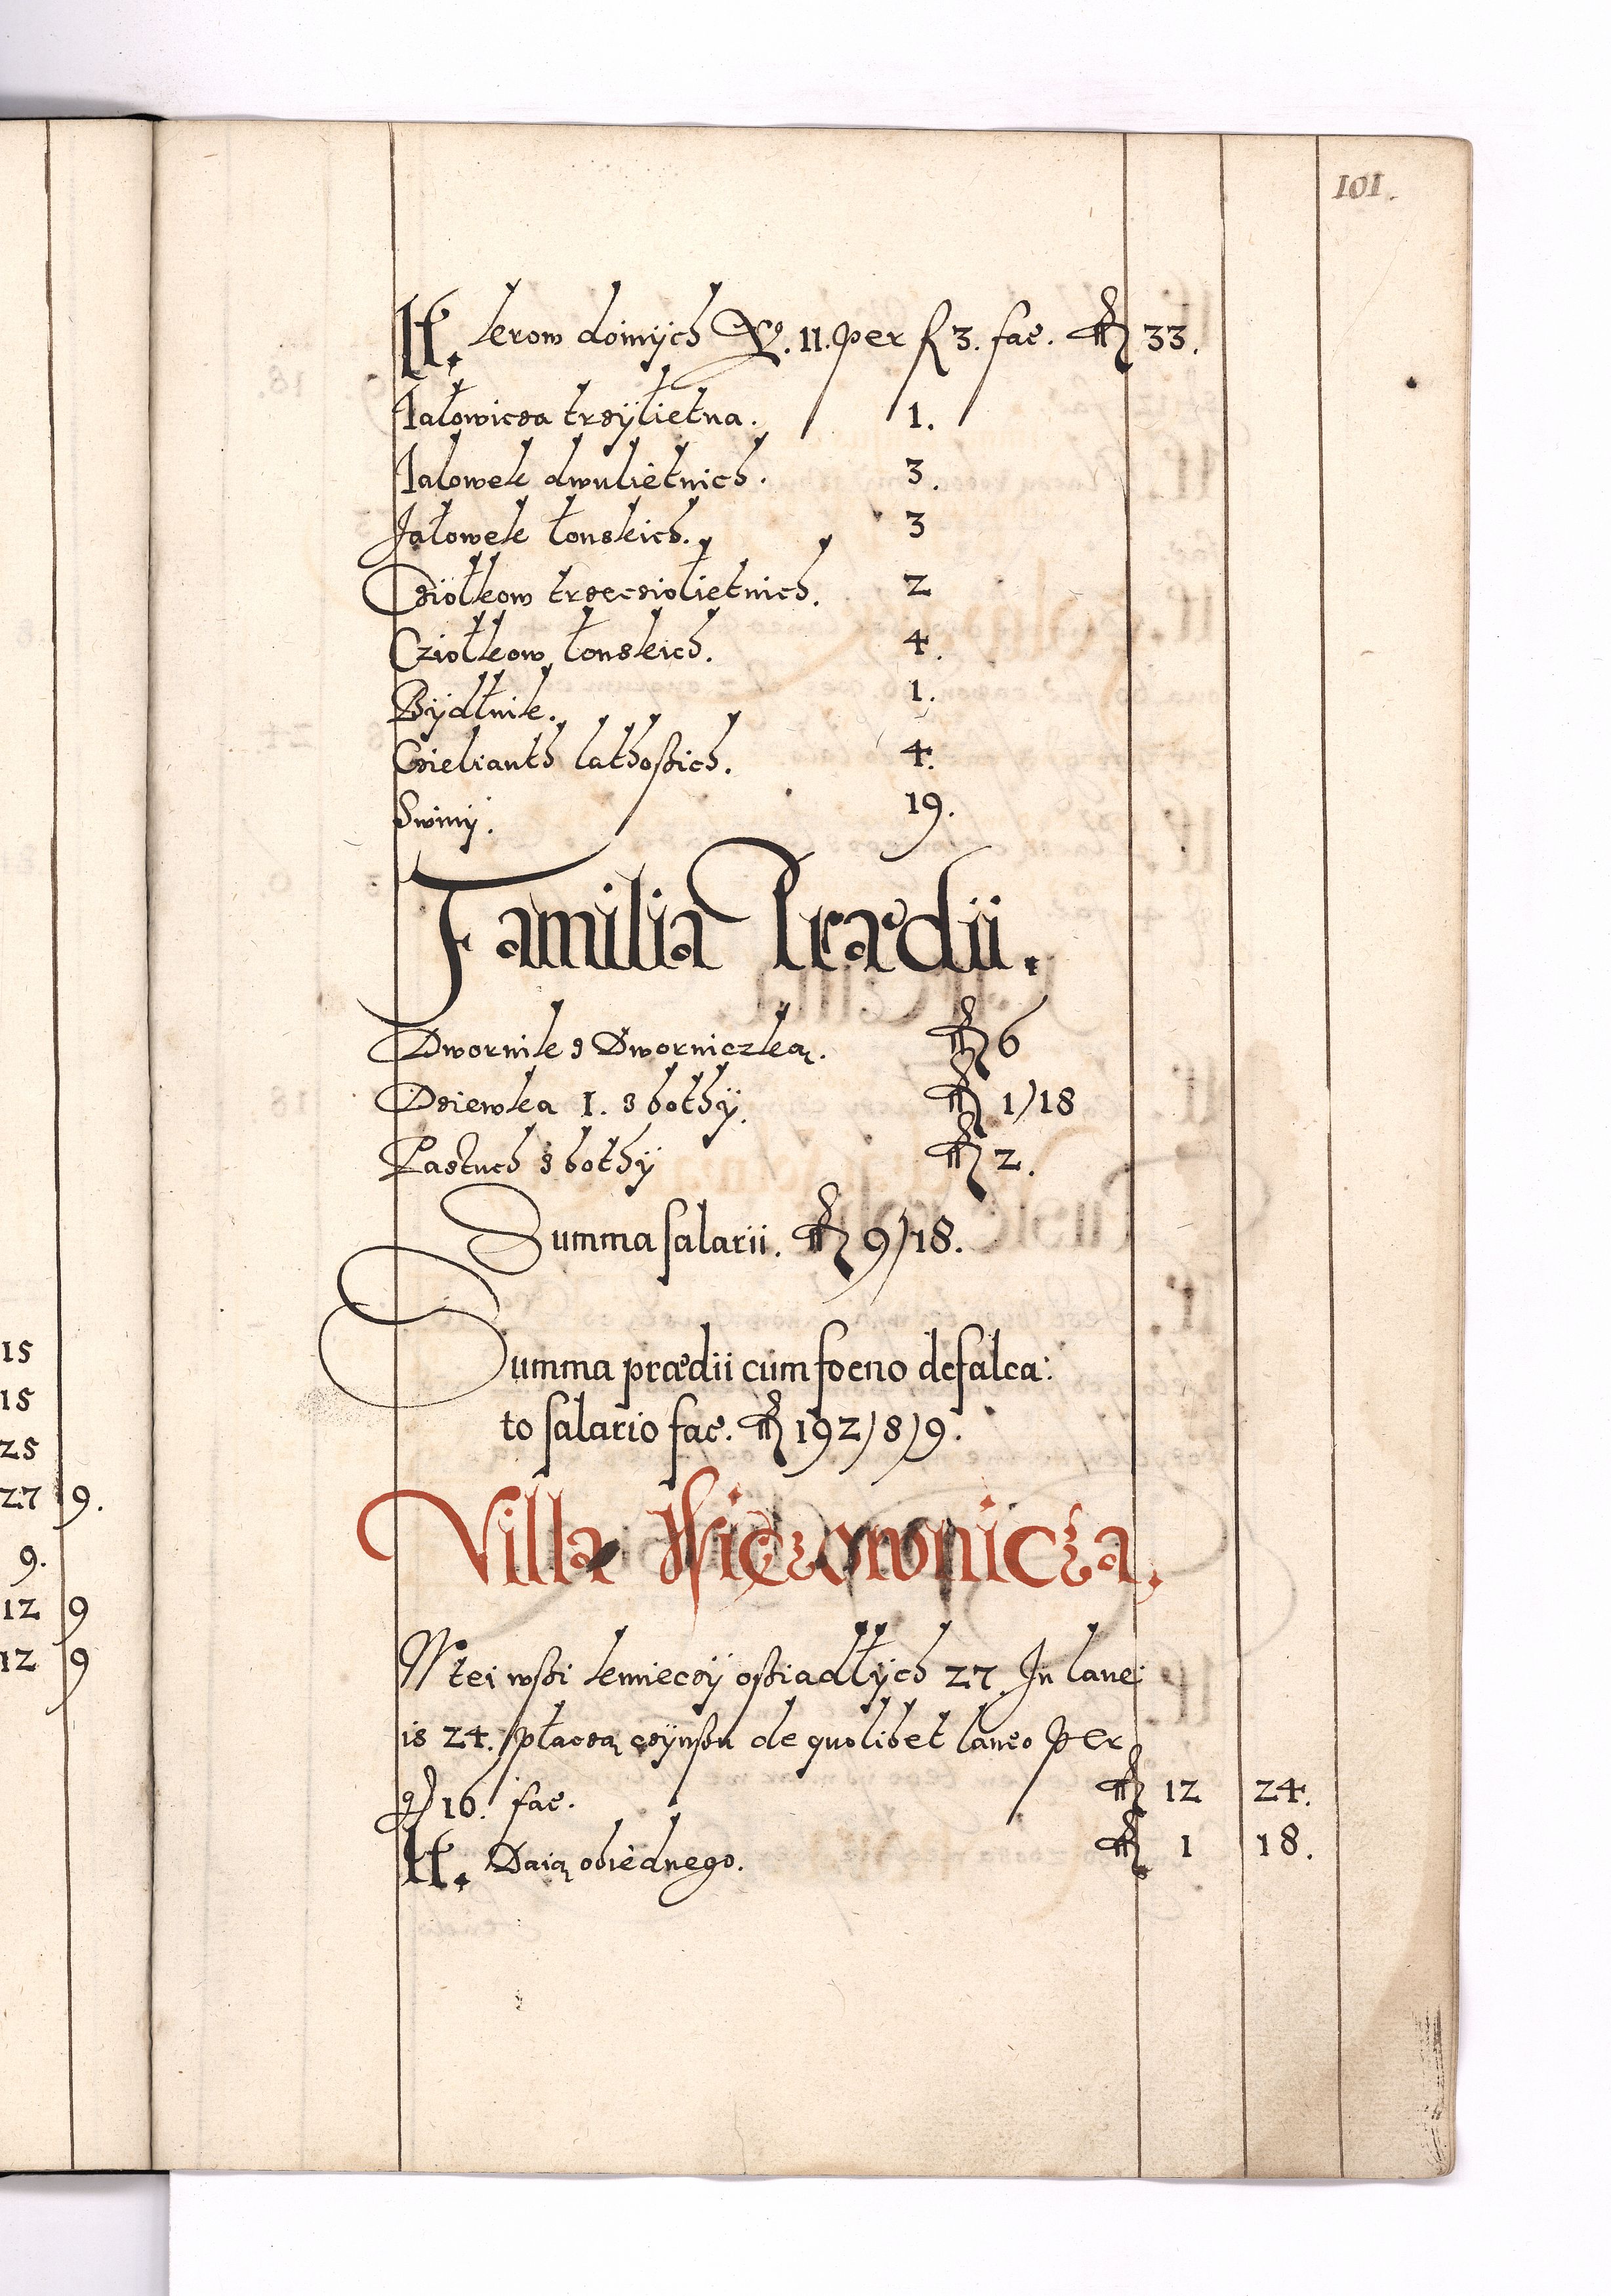 101.
It. krow doinÿch No. 11. per f 3. fac. fl 33.
Jałowicza trzÿlietna. 1.
Jalowek dwulietnich. 3.
Jałowek łonskich. 3
Cziołkow trzecziolietnich. 2
Cziołkow łonskich. 4.
Bÿdłnik. 1.
Czielianth lathoßich. 4.
Swinÿ. 19.
Familia Prædii.
Dwornik z Dworniczką. fl 6
Dziewka 1. z bothÿ. fl 1/18
Pastuch z bothÿ fl 2.
Summa salarii. fl 9/18.
Summa prædii cum foeno defalca:
to salario fac. fl 192/8/9.
Villa
W tei wßi kmieczÿ oßiadłÿch 27. In lane:
is 24. płaczą czÿnßu de quolibet laneo per
g 16. fac. fl 12 24.
It. Daią obiednego. fl 1 18.
15
15
25
27 9.
9.
12 9
12 9